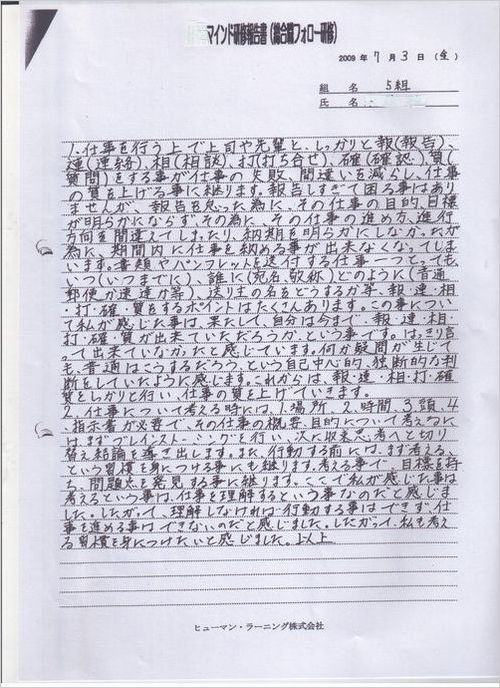 マインド研修報告書(総合職フォロー研修)
2009 年 7 月 3 日 (金)
組 名 5組
氏 名
1.仕事を行う上で上司や先輩と、しっかりと報(報告)、
連(連絡)、相(相談)、打(打ち合せ)、確(確認)、質(
質問)をする事が仕事の失敗、間違いを減らし、仕事
の質を上げる事に継ります。報告しすぎて困る事はあり
ませんが、報告を怠った為に、その仕事の目的、目標
が明らかにならず、その為に、その仕事の進め方、進行
方向を間違えてしまったり、納期を明らかにしなかったが
為に、期間内に仕事を納める事が出来なくなってしま
います。書類やパンフレットを送付する仕事一つとっても、
いつ(いつまでに)、誰に(宛名、敬称)どのように(普通
郵便か速達か等)、送り主の名をどうするか等、報・連・相
・打・確・質をするポイントはたくさんあります。この事につい
て私が感じた事は、果たして、自分は今まで、報・連・相・
打・確・質が出来ていただろうか、という事です。はっきり言
って出来ていなかったと感じています。何か疑問が生じて
も、普通はこうするだろう、という自己中心的、独断的な判
断をしていたように感じます。これからは、報・連・相・打・確
質をしっかりと行い、仕事の質を上げていきます。
2.仕事について考える時には、1.場所、2.時間、3.頭、4.
指示書が必要で、その仕事の概要、目的について考えるに
はまずブレインストーミングを行い、次に収束思考へと切り
替え結論を導き出します。また、行動する前には、まず考える、
という習慣を身につける事にも継ります。考える事で、目標を持
ち、問題点を発見する事に継ります。ここで私が感じた事は
考えるという事は、仕事を理解するという事なのだと感じま
した。したがって、理解しなければ行動する事はできず、仕
事を進める事はできないのだと感じました。したがって、私も考え
る習慣を身につけたいと感じました。以上
ヒューマン・ラーニング株式会社